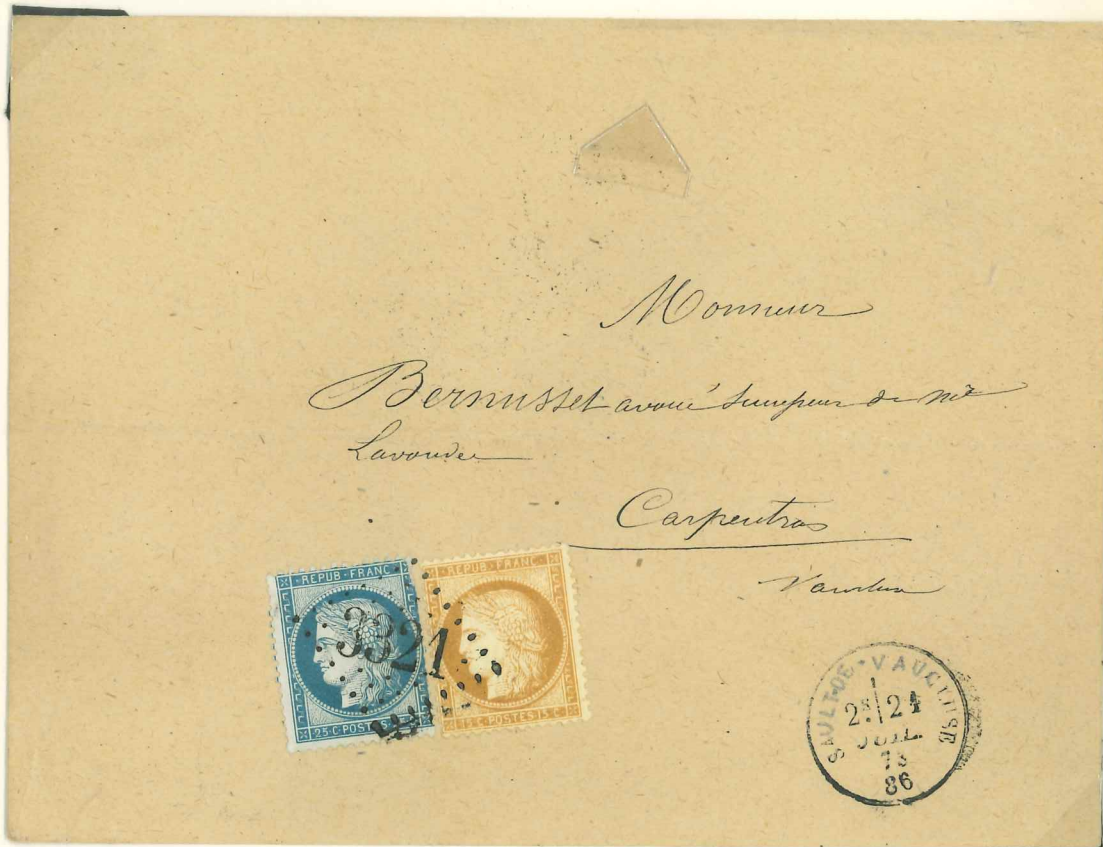 Monsieur
Bernusset avoué successeur de Me
Lavondes
Carpentras
Vaucluse
REPUB·FRANC
25·C·POSTES
REPUB·FRANC
15·C·POSTES15·C
3321
SAULT-DE-VAUCLUSE
2E 24
JUIL.
73
86